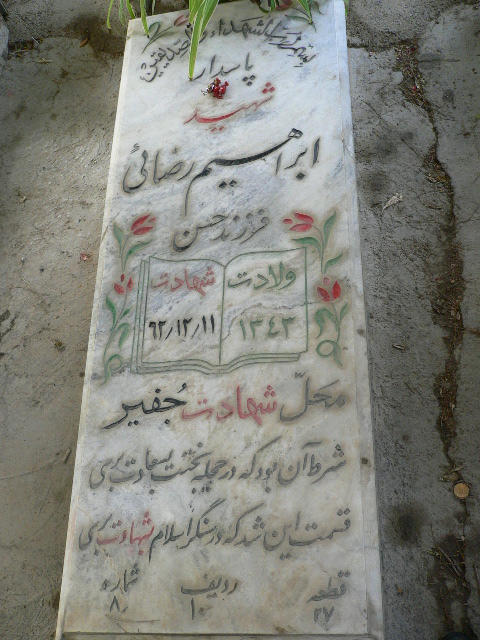 بسم رب الشهداء و الصدیقین
پاسدار
شهید
ابراهیم رضائی
فرزند حسن
ولادت شهادت
۱۳۴۳ ۶۲/۱۲/۱۱
محلّ شهادت جُفیر
شرط آن بود که در حجله بختت بسعادت برسی
قسمت این شد که در سنگر اسلام بشهادت برسی
قطعه ردیف شماره
۲۷ ۱۰ ۸